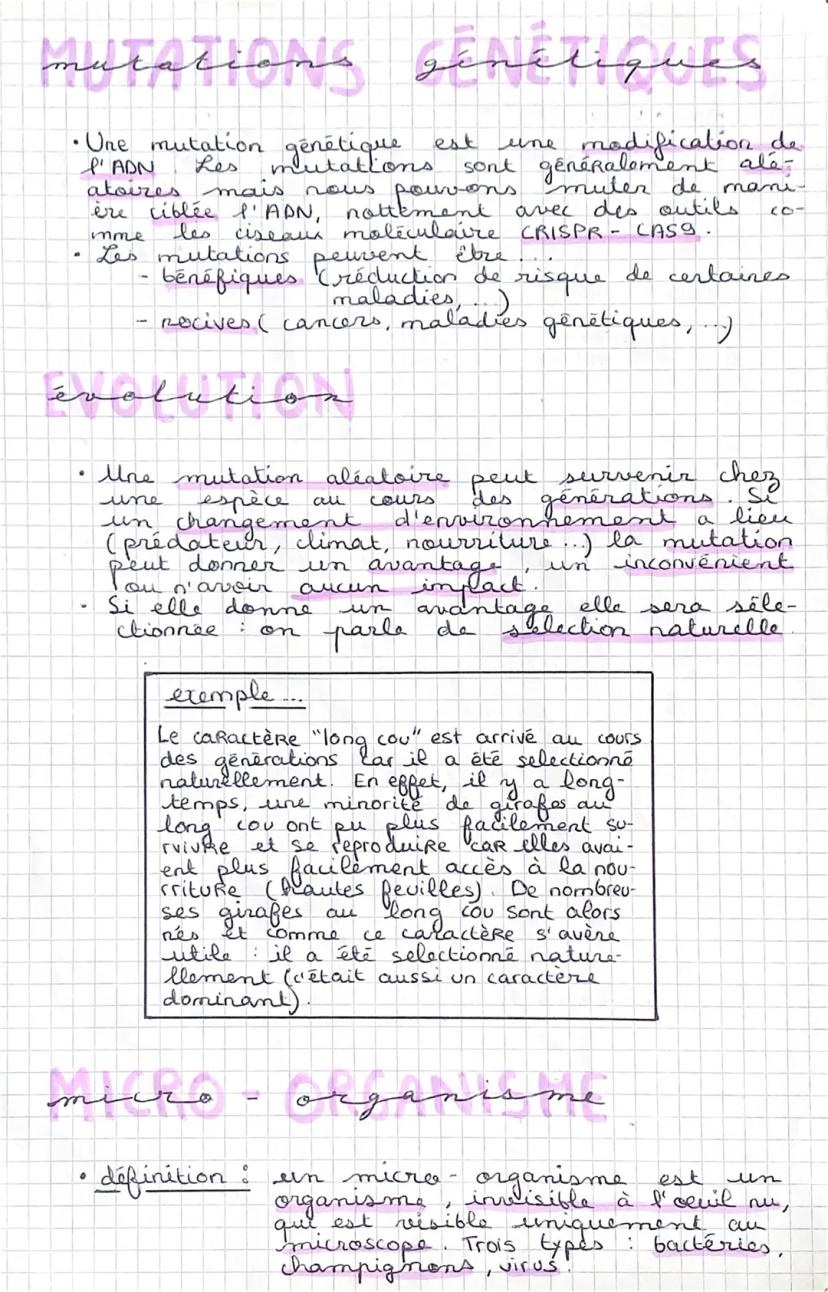 MUTATIONS GÉNÉTIQUES
mutations génétiques
• Une mutation génétique est une modification de
l'ADN. Les mutations sont généralement alé-
atoires mais nous pouvons muter de mani-
ère ciblée l'ADN, nottement avec des outils co-
mme les ciseaux moléculaire CRISPR-CAS9.
• Les mutations peuvent être...
- bénéfiques (réduction de risque de certaines
maladies, ...)
- nocives (cancers, maladies génétiques, ...)
EVOLUTION
évolution
• Une mutation aléatoire peut survenir chez
une espèce au cours des générations. Si
un changement d'environnement a lieu
(prédateur, climat, nourriture...) la mutation
peut donner un avantage, un inconvénient
ou n'avoir aucun impact.
• Si elle donne un avantage elle sera séle-
ctionnée : on parle de sélection naturelle.
exemple...
Le caractère "long cou" est arrivé au cours
des générations car il a été selectionné
naturellement. En effet, il y a long-
temps, une minorité de girafes au
long cou ont pu plus facilement su-
rvivre et se reproduire car elles avai-
ent plus facilement accès à la nou-
rriture (hautes feuilles). De nombreu-
ses girafes au long cou sont alors
nés et comme ce caractère s'avère
utile : il a été selectionné nature-
llement (c'était aussi un caractère
dominant).
MICRO-ORGANISME
micro-organisme
• définition : un micro-organisme est un
organisme, invisible à l'oeuil nu,
qui est visible uniquement au
microscope. Trois types : bactéries,
champignons, virus.